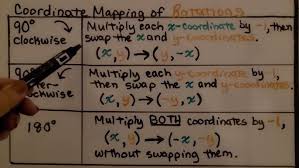 Coordinate Mapping of Rotations
90°
clockwise
Multiply each x-coordinate by -1, then
swap the x and y-coordinates.
(x, y) → (y, -x)
90°
clockwise
Multiply each y-coordinate by -1,
then swap the x and y-coordinates.
(x, y) → (-y, x)
180°
Multiply BOTH coordinates by -1,
(x, y) → (-x, -y)
without swapping them.